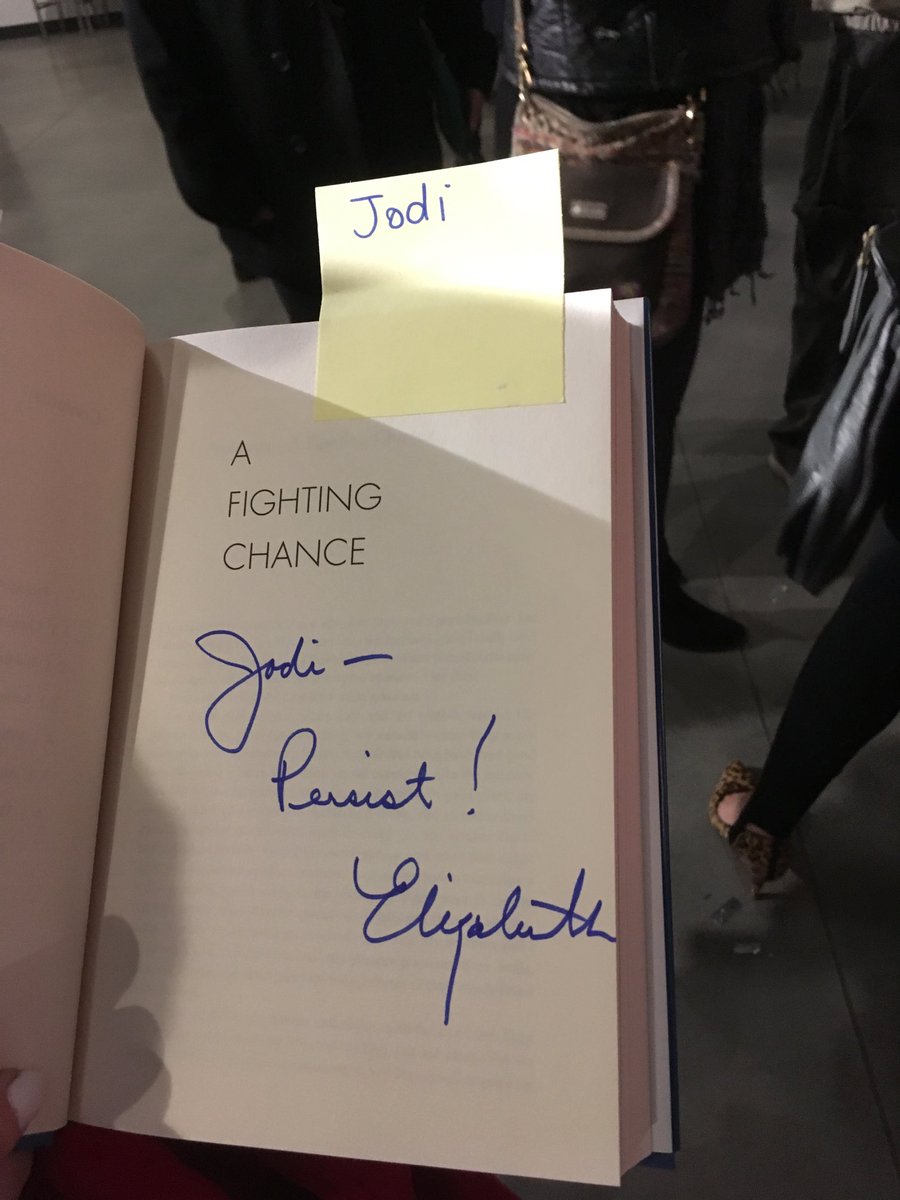 Jodi
A
FIGHTING
CHANCE
Jodi —
Persist!
Elizabeth